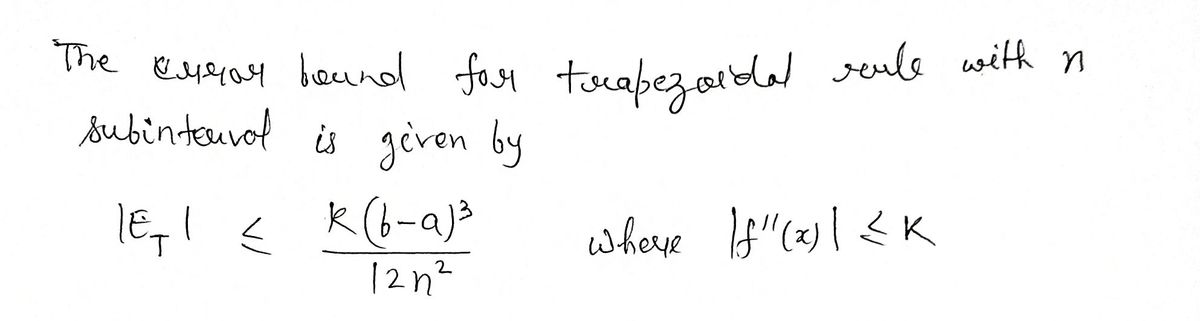 The error bound for trapezoidal rule with n
subinterval is given by
|E_T| ≤ K(b-a)³ / 12n² where |f''(x)| ≤ K